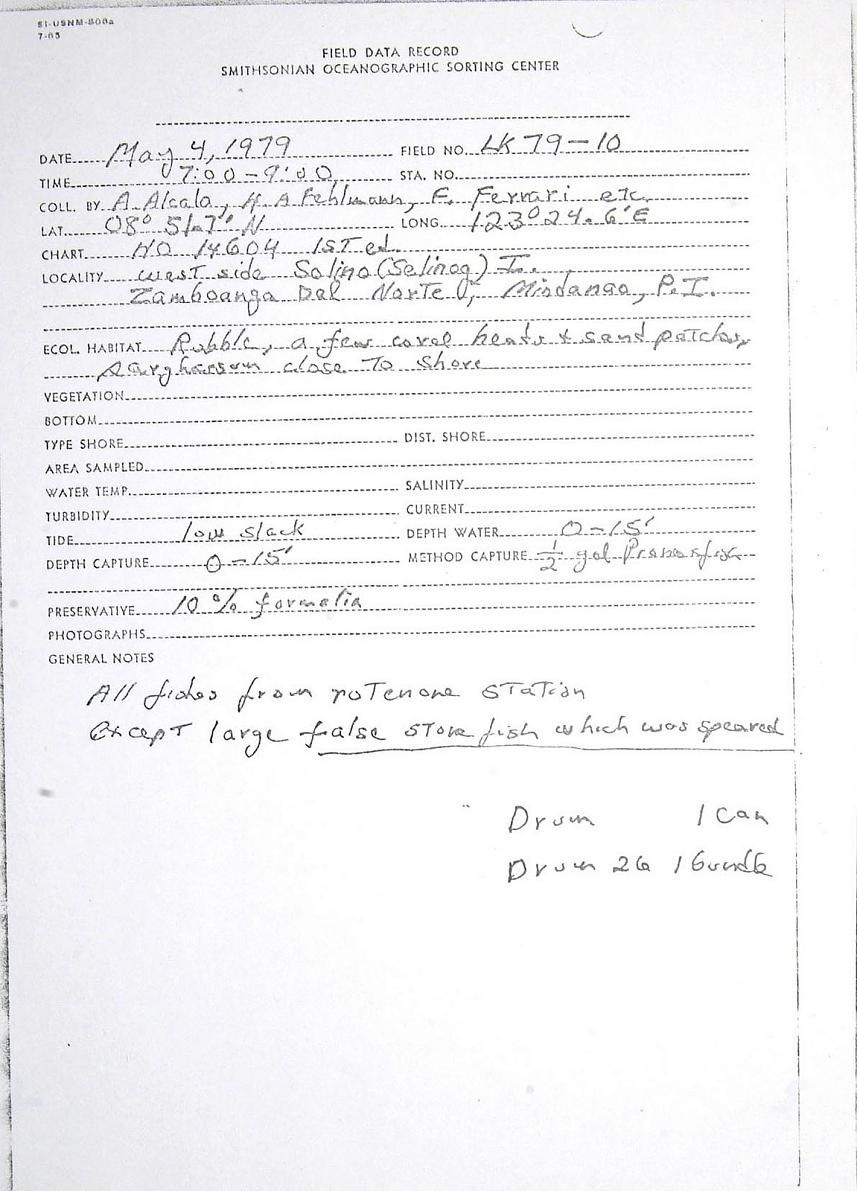 SI-USNM-800a
7-65
FIELD DATA RECORD
SMITHSONIAN OCEANOGRAPHIC SORTING CENTER
DATE May 4, 1979 FIELD NO. LK 79-10
TIME 7:00-9:00 STA. NO.
COLL. BY A. Alcala, H A Fehlmann, F. Ferrari etc.
LAT. 08° 51.7' N LONG. 123° 24.6' E
CHART HO 14604 1st ed.
LOCALITY west side Salino (Selinog) I.
Zamboanga Del Norte, Mindanao, P.I.
ECOL. HABITAT Rubble, a few coral heads & sand patches,
sarghassum close to shore
VEGETATION
BOTTOM
TYPE SHORE DIST. SHORE
AREA SAMPLED
WATER TEMP. SALINITY
TURBIDITY CURRENT
TIDE low slack DEPTH WATER 0-15'
DEPTH CAPTURE 0-15' METHOD CAPTURE 1/2 gal Pronoxfish
PRESERVATIVE 10% formalin
PHOTOGRAPHS
GENERAL NOTES
All fishes from rotenone station
Except large false stone fish which was speared
Drum 1 Can
Drum 26 1 Bundle